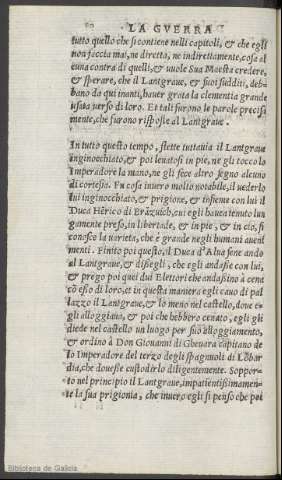 LA GVERRA
tutto quello che si contiene nelli capitoli, & che egli
non faccia mai, ne diretta, ne indirettamente, cosa al
cuna contra di quelli, & uuole Sua Maesta credere,
& sperare, che il Lantgraue, & suoi sudditi, deb-
bano da qui inanti, hauer grata la clementia grande
usata uerso di loro. Et tali furono le parole precisa
mente, che furono risposte al Lantgraue.
In tutto questo tempo, stette tuttauia il Lantgraue
inginocchiato, & poi leuatosi in pie, ne gli tocco lo
Imperadore la mano, ne gli fece altro segno alcuno
di cortesia. Fu cosa inuero molto notabile, il uederlo
lui inginocchiato, & prigione, & insieme con lui il
Duca Hērico di Brāzuich, cui egli hauea tenuto lun
gamente preso, in libertade, & in pie, & in cio, si
conosce la uarieta, che è grande negli humani aueni
menti. Finito poi questo, il Duca d'Alua sene ando
al Lantgraue, & dissegli, che egli andasse con lui,
& prego poi quei dui Elettori che andassino à cena
cō esso di loro, et in questa maniera egli cauo di pal
lazzo il Lantgraue, & lo meno nel castello, doue e-
gli alloggiaua, & poi che hebbero cenato, egli gli
diede nel castello un luogo per suò alloggiamento,
& ordino à Don Giouanni di Gheuara capitano de
lo Imperadore del terzo degli spagnuoli di Lōbar
dia, che douesse custodirlo diligentemente. Soppor-
to nel principio il Lantgraue, impatientissimamen-
te la sua prigionia, che inuero egli si penso che poi
Biblioteca de Galicia